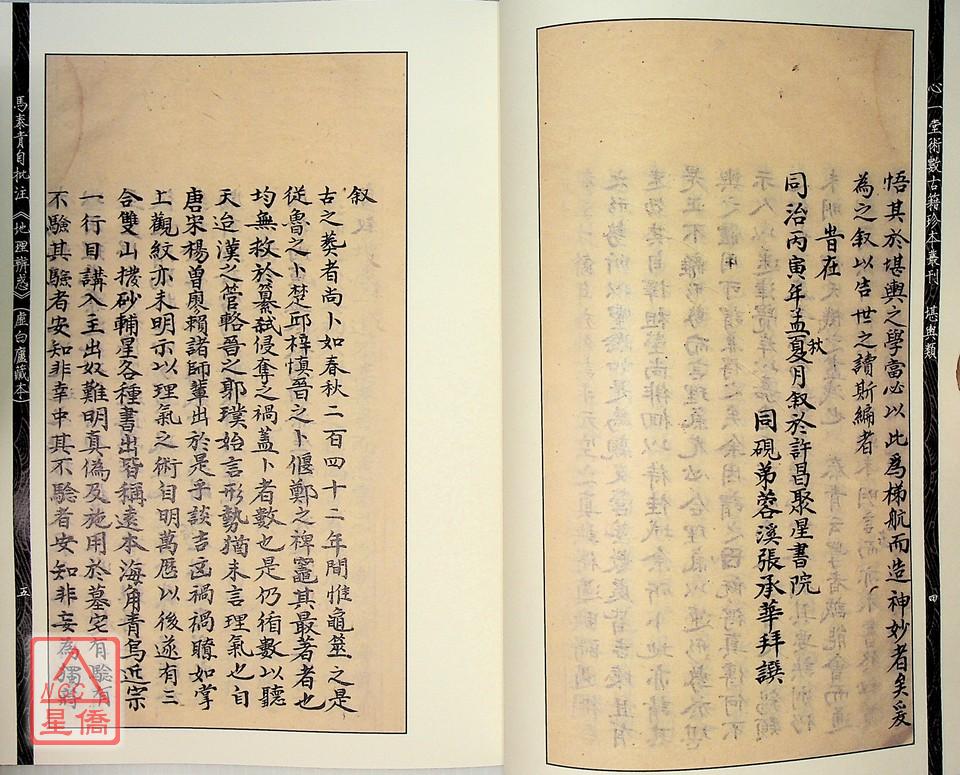 心一堂術數古籍珍本叢刊 堪輿類
四
悟其於堪輿之學當必以此為梯航而造神妙者矣爰
為之叙以告世之讀斯編者
旹在
同治丙寅年孟夏月叙於許昌聚星書院
秋
同硯弟蓉溪張承華拜譔
叙
古之葬者尚卜如春秋二百四十二年間惟龜筮之是
從魯之卜楚邱梓慎晉之卜偃鄭之裨竈其最著者也
均無救於纂弒侵奪之禍蓋卜者數也是仍徇數以聽
天迨漢之管輅晉之郭璞始言形勢猶未言理氣也自
唐宋楊曾廖賴諸師輩出於是乎談吉凶禍福瞭如掌
上觀紋亦未明示以理氣之術自明萬歷以後遂有三
合雙山撥砂輔星各種書出皆稱遠本海角青烏近宗
一行目講入主出奴難明真偽及施用於墓宅有驗有
不驗其驗者安知非幸中其不驗者安知非妄為獨將
馬泰青自批注《地理辨惑》(虛白廬藏本)
五
NCC
星僑